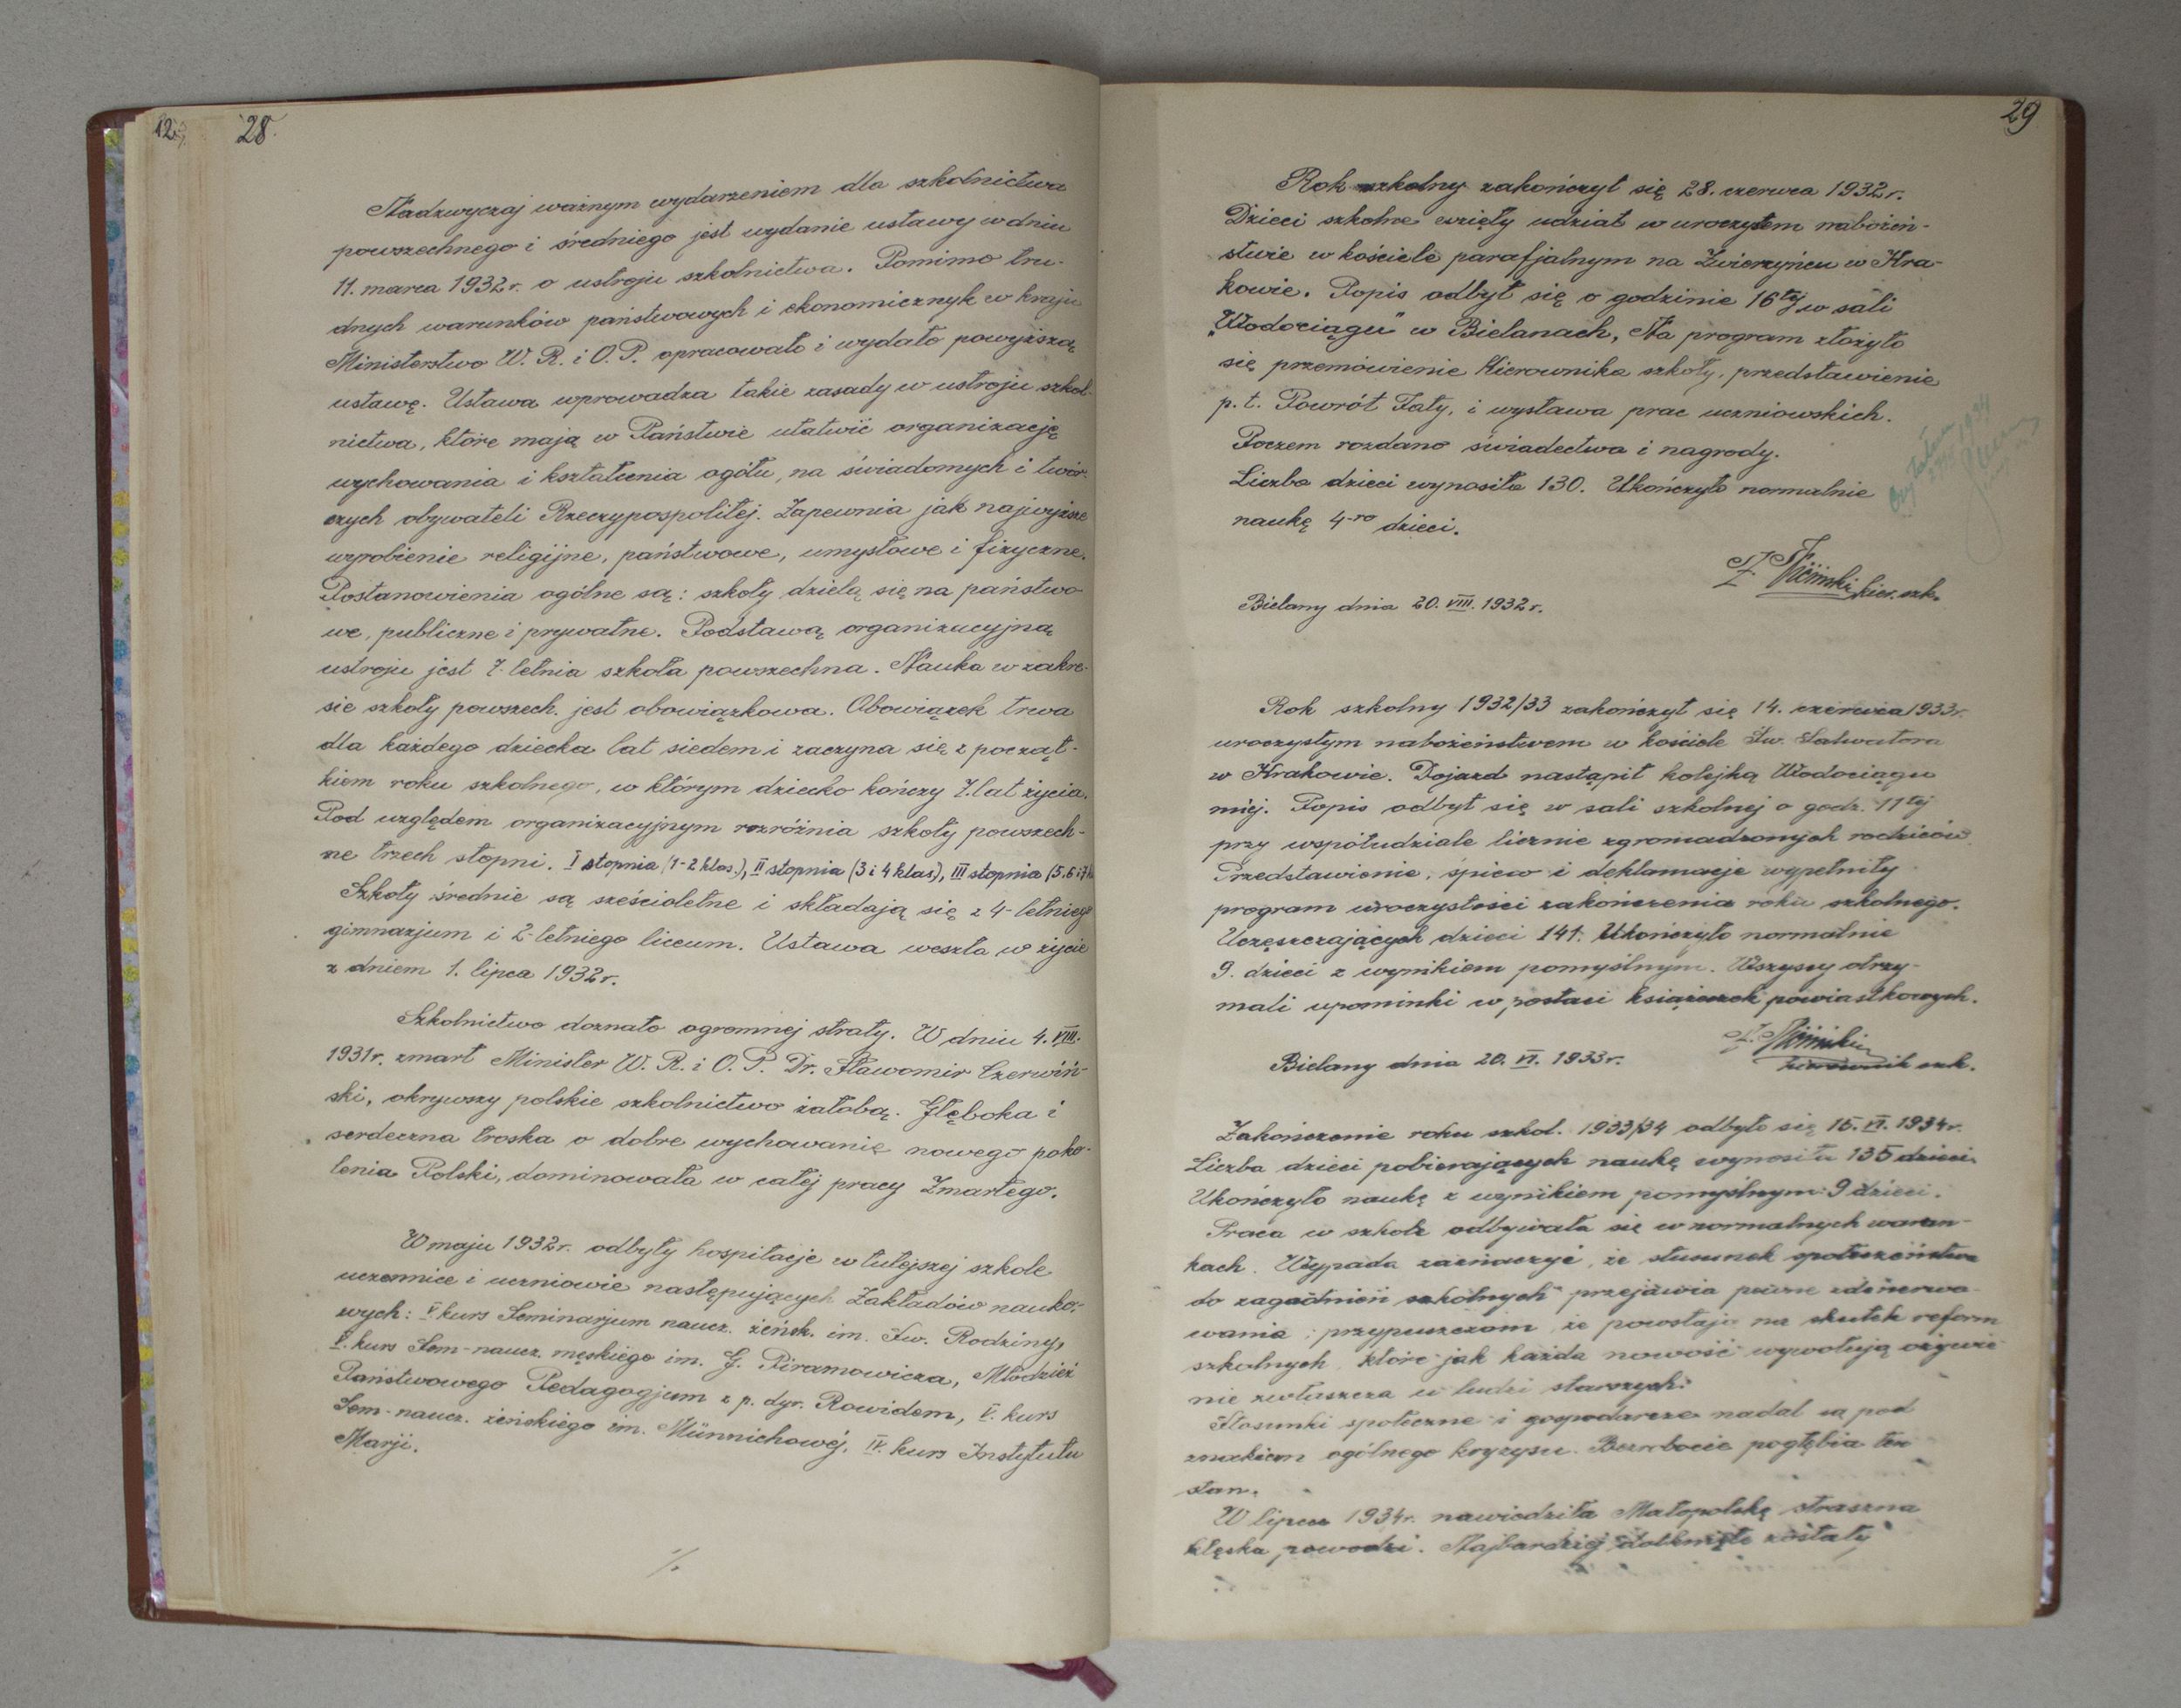 12.
28.
Nadzwyczaj ważnym wydarzeniem dla szkolnictwa
powszechnego i średniego jest wydanie ustawy w dniu
11. marca 1932 r. o ustroju szkolnictwa. Pomimo tru-
dnych warunków państwowych i ekonomicznyk w kraju
Ministerstwo W. R. i O. P. opracowało i wydało powyższą
ustawę. Ustawa wprowadza takie zasady w ustroju szkol-
nictwa, które mają w Państwie ułatwić organizację
wychowania i kształcenia ogółu, na świadomych i twór-
czych obywateli Rzeczypospolitej. Zapewnia jak najwyższe
wyrobienie religijne, państwowe, umysłowe i fizyczne.
Postanowienia ogólne są: szkoły dzielą się na państwo-
we, publiczne i prywatne. Podstawą organizacyjną
ustroju jest 7. letnia szkoła powszechna. Nauka w zakre-
sie szkoły powszech. jest obowiązkowa. Obowiązek trwa
dla każdego dziecka lat siedem i zaczyna się z począt-
kiem roku szkolnego, w którym dziecko kończy 7. lat życia.
Pod względem organizacyjnym rozróżnia szkoły powszech-
ne trzech stopni. I stopnia (1-2 klas.), II stopnia (3 i 4 klas), III stopnia (5.6 i 7
Szkoły średnie są sześcioletne i składają się z 4-letniego
gimnazjum i 2-letniego liceum. Ustawa weszła w życie
z dniem 1. lipca 1932 r.
Szkolnictwo doznało ogromnej straty. W dniu 4. VIII.
1931 r. zmarł Minister W. R. i O. P. Dr. Sławomir Czerwiń-
ski, okrywszy polskie szkolnictwo żałobą. Głęboka i
serdeczna troska o dobre wychowanie nowego poko-
lenia Polski, dominowała w całej pracy Zmarłego.
W maju 1932 r. odbyły hospitacje w tutejszej szkole
uczennice i uczniowie następujących Zakładów nauko-
wych: V kurs Seminarjum naucz. żeńsk. im. Św. Rodziny,
V. kurs Sem-naucz. męskiego im. G. Piramowicza, Młodzież
Państwowego Pedagogjum z p. dyr. Rowidem, V. kurs
Sem-naucz. żeńskiego im. Münnichowej, IV. kurs Instytutu
Marji.
./.
29
Rok szkolny zakończył się 28. czerwca 1932 r.
Dzieci szkolne wzięły udział w uroczystem nabożeń-
stwie w kościele parafjalnym na Zwierzyńcu w Kra-
kowie. Popis odbył się o godzinie 16tej w sali
„Wodociągu" w Bielanach, Na program złożyło
się przemówienie Kierownika szkoły, przedstawienie
p. t. Powrót Taty, i wystawa prac uczniowskich.
Poczem rozdano świadectwa i nagrody.
Liczba dzieci wynosiła 130. Ukończyło normalnie
naukę 4-ro dzieci.
kier. szk.
Bielany dnia 20. VIII. 1932 r.
Rok szkolny 1932/33 zakończył się 14. czerwca 1933 r.
uroczystym nabożeństwem w kościele Św. Salwatora
w Krakowie. Dojazd nastąpił kolejką Wodociągu
miej. Popis odbył się w sali szkolnej o godz. 11tej
przy współudziale licznie zgromadzonych rodziców.
Przedstawienie, śpiew i deklamacje wypełniły
program uroczystości zakończenia roku szkolnego.
Uczęszczających dzieci 141. Ukończyło normalnie
9. dzieci z wynikiem pomyślnym. Wszyscy otrzy-
mali upominki w postaci książeczek powiastkowych.
Bielany dnia 20. VI. 1933 r.
kierownik szk.
Zakończenie roku szkol. 1933/34 odbyło się 15. VI. 1934 r.
Liczba dzieci pobierających naukę wynosiła 135 dzieci.
Ukończyło naukę z wynikiem pomyślnym: 9 dzieci.
Praca w szkole odbywała się w normalnych warun-
kach. Wypada zaznaczyć, że stosunek społeczeństwa
do zagadnień szkolnych przejawia pewne zdenerwo-
wanie; przypuszczam, że powstaje na skutek reform
szkolnych, które jak każda nowość wywołują ożywie-
nie zwłaszcza u ludzi starszych.
Stosunki społeczne i gospodarcze nadal są pod
znakiem ogólnego kryzysu. Bezrobocie pogłębia ten
stan.
W lipcu 1934 r. nawiedziła Małopolskę straszna
klęska powodzi. Najbardziej dotknięte zostały